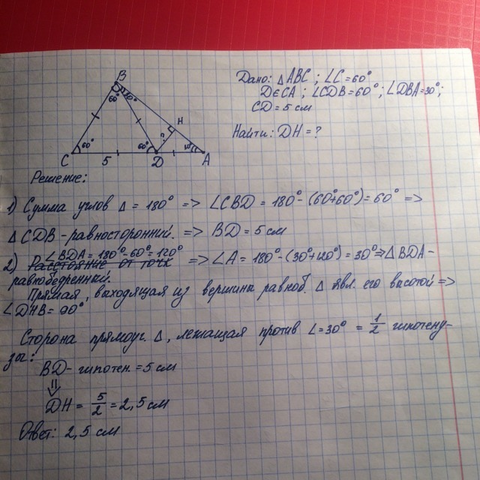 B
60° 30°
H
C 60° 5 60° D A
Дано: △ABC ; ∠C=60°
D∈CA ; ∠CDB=60°; ∠DBA=30°;
CD=5 см
Найти: DH=?
Решение:
1) Сумма углов △ = 180° => ∠CBD = 180°-(60°+60°)=60° =>
△CDB-равносторонний. => BD=5 см
∠BDA=180°-60°=120°
2) => ∠A=180°-(30°+120°)=30°=>△BDA-
равнобедренный.
Прямая, выходящая из вершины равноб. △ явл. его высотой =>
∠DHB=90°
Сторона прямоуг. △, лежащая против ∠=30° = 1/2 гипотену-
зы:
BD-гипотен.=5 см
⇓
DH = 5/2 = 2,5 см
Ответ: 2,5 см